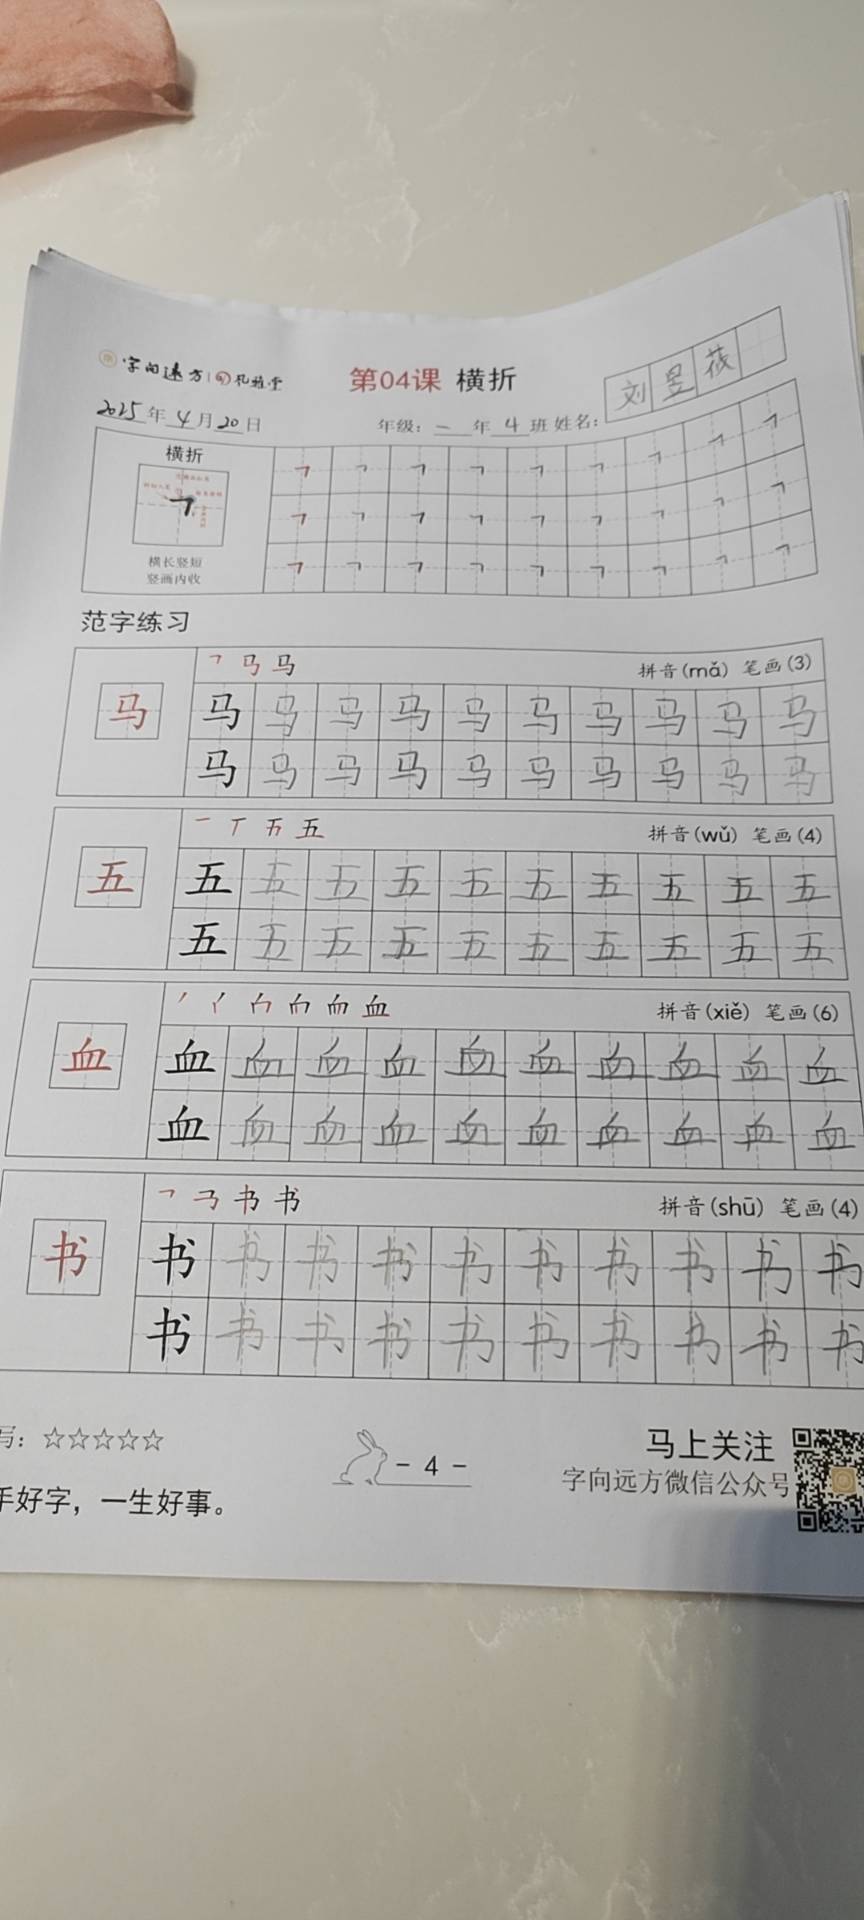 字向远方 孔雅堂
第04课 横折
刘昱莜
2025年4月20日 年级：一年4班 姓名：
横折
横长竖短
竖画内收
范字练习
马 拼音(mǎ) 笔画(3)
马
马 马 马 马 马 马 马 马 马 马
马 马 马 马 马 马 马 马 马 马
五 拼音(wǔ) 笔画(4)
五
五 五 五 五 五 五 五 五 五 五
五 五 五 五 五 五 五 五 五 五
血 拼音(xiě) 笔画(6)
血
血 血 血 血 血 血 血 血 血 血
血 血 血 血 血 血 血 血 血 血
书 拼音(shū) 笔画(4)
书
书 书 书 书 书 书 书 书 书 书
书 书 书 书 书 书 书 书 书 书
写：☆☆☆☆☆
- 4 -
马上关注
字向远方微信公众号
手好字，一生好事。